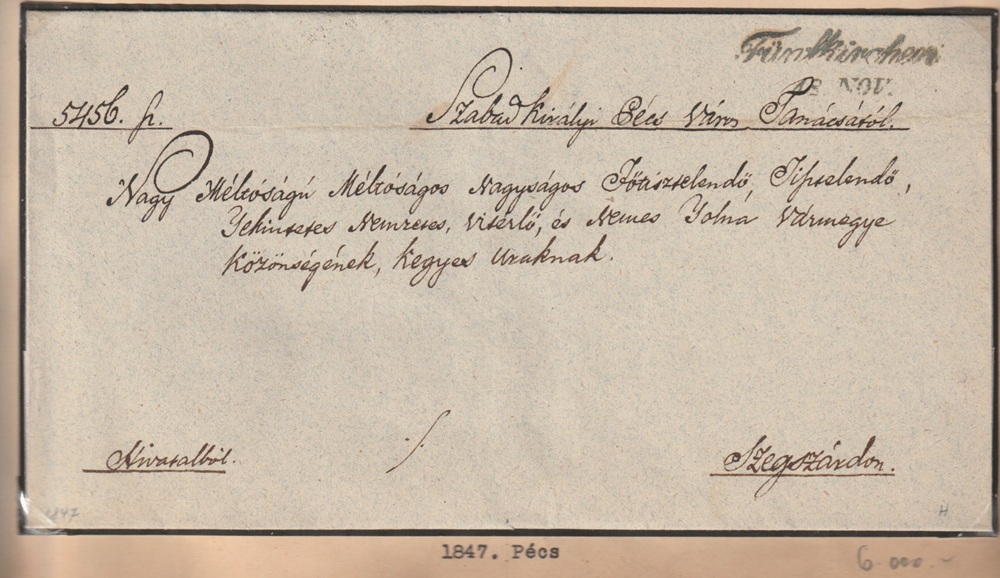 Fünfkirchen
18 NOV.
5456. sz.
Szabad Királyi Pécs Város Tanácsától.
Nagy Méltóságú Méltóságos Nagyságos Főtisztelendő, Tisztelendő,
Tekintetes Nemzetes, Vitézlő, és Nemes Tolna Vármegye
Közönségének, Kegyes Uraknak.
Hivatalból.
Szegszárdon.
1847
H
1847. Pécs
6 000.-